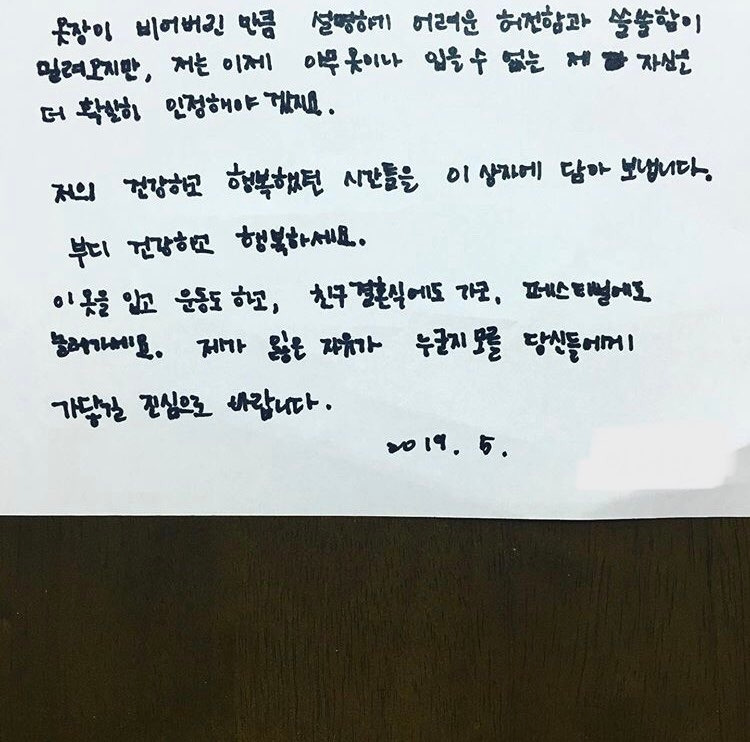 옷장이 비어버린 만큼 설명하기 어려운 허전함과 쓸쓸함이
밀려오지만, 저는 이제 아무 옷이나 입을 수 없는 제 자신을
더 확실히 인정해야 겠지요.
저의 건강하고 행복했던 시간들을 이 상자에 담아 보냅니다.
부디 건강하고 행복하세요.
이 옷을 입고 운동도 하고, 친구 결혼식에도 가고, 페스티벌에도
놀러가세요. 제가 잃은 자유가 누군지 모를 당신들에게
가닿길 진심으로 바랍니다.
2019. 5.